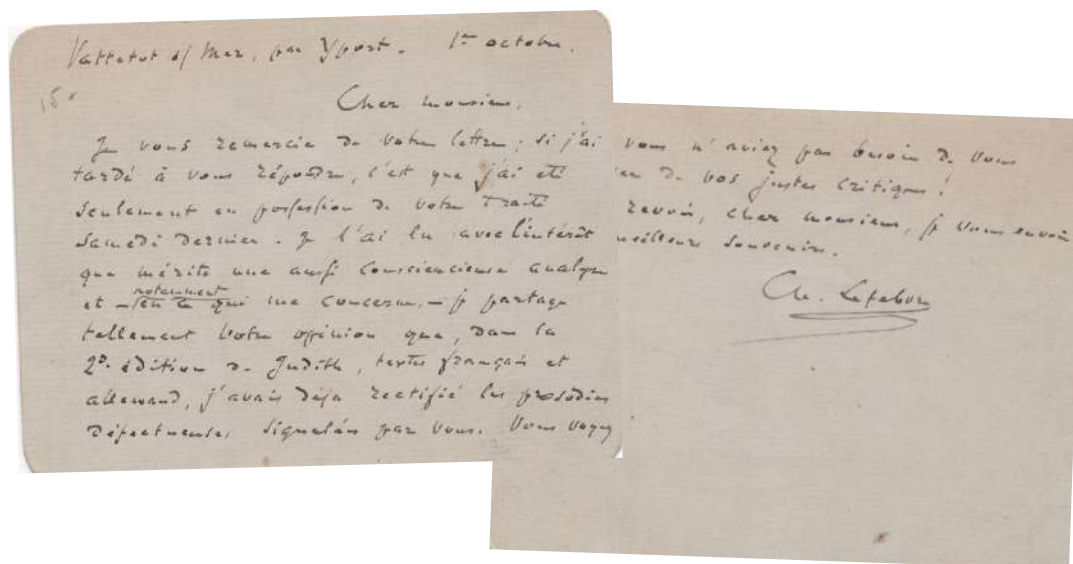 Vattetot s/ Mer, par Yport. 1er octobre.
Cher monsieur,
Je vous remercie de votre lettre ; si j'ai
tardé à vous répondre, c'est que j'ai été
seulement en possession de votre Traité
samedi dernier. Je l'ai lu avec l'intérêt
que mérite une aussi consciencieuse analyse
et — notamment en ce qui me concerne, — je partage
tellement votre opinion que, dans la
2e édition de Judith, textes français et
allemand, j'avais déjà rectifié les prosodies
défectueuses signalées par vous. Vous voyez
vous n'aviez pas besoin de vous
de vos justes critiques !
revoir, cher monsieur, je vous envoie
meilleurs souvenirs.
Ch. Lefebvre